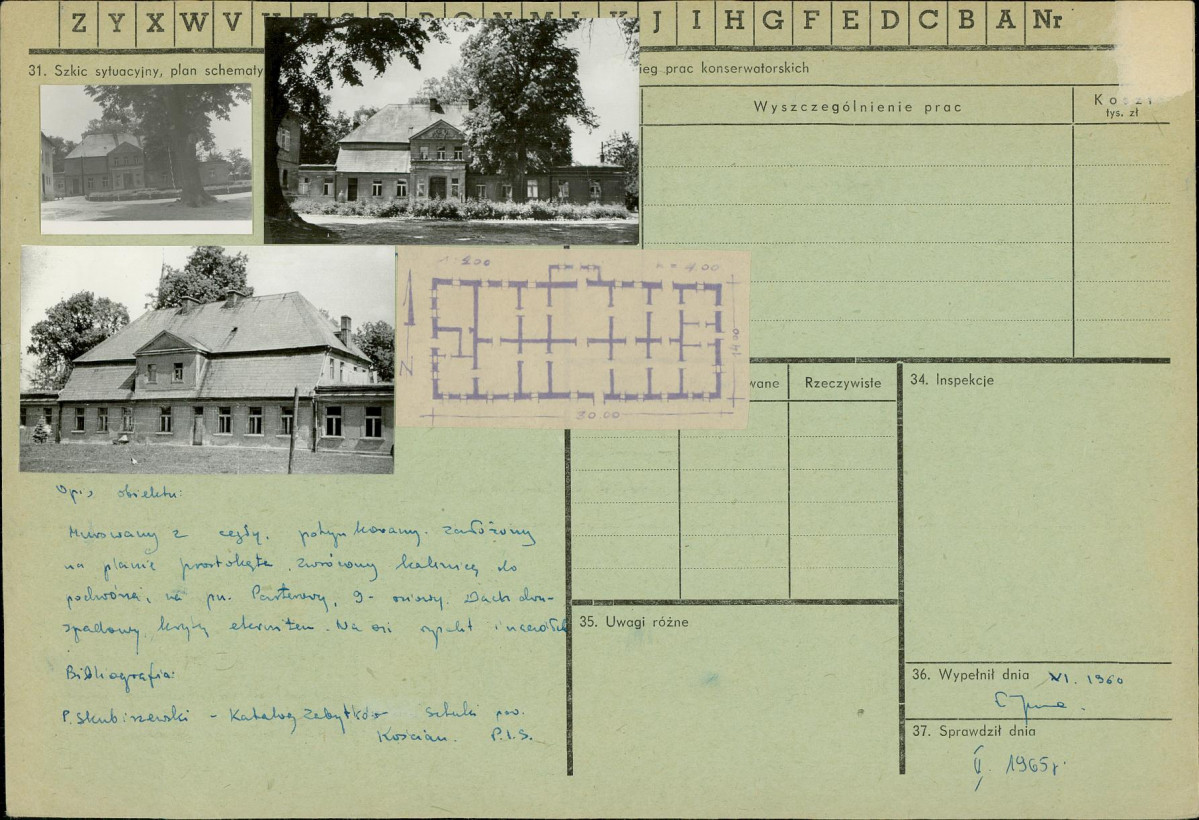 Z Y X W V J I H G F E D C B A Nr
31. Szkic sytuacyjny, plan schematy
ieg prac konserwatorskich
Wyszczególnienie prac
Koszt
tys. zł
1:200
h = 4.00
N
14.00
30.00
wane
Rzeczywiste
34. Inspekcje
Opis obiektu:
Murowany z cegły, potynkowany. Założony
na planie prostokąta, zwrócony kalenicą do
podwórza, na pn. Parterowy, 9-osiowy. Dach dwu-
spadowy kryty eternitem. Na osi ryzalit
Bibliografia:
P. Skubiszewski - Katalog Zabytków Sztuki pow.
Kościan. P.I.S.
35. Uwagi różne
36. Wypełnił dnia XI. 1960
37. Sprawdził dnia
1965r.